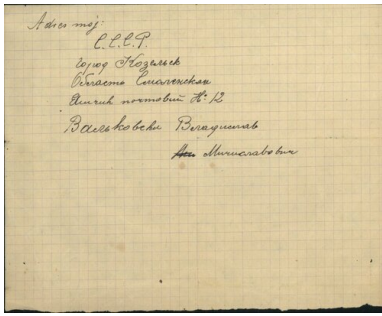 Adres mój:
С.С.С.Р.
город Козельск
Область Смоленская
Ящик постовий № 12
Вальковски Владислав
Мичиславович